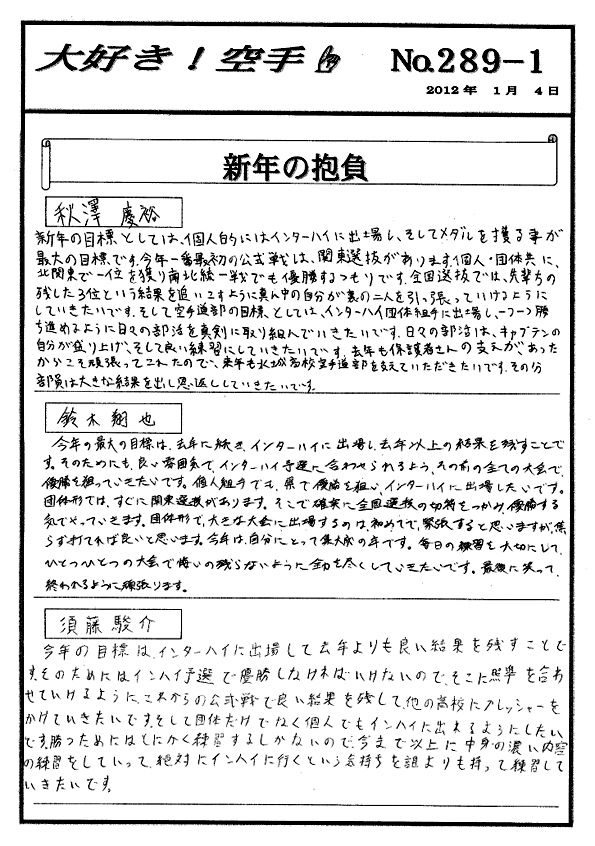 大好き！空手 No.289-1
2012年 1月 4日
新年の抱負
秋澤 慶裕
新年の目標としては、個人的にはインターハイに出場し、そしてメダルを獲る事が
最大の目標です。今年一番最初の公式戦は、関東選抜があります。個人・団体共に、
北関東で一位を獲り南北統一戦でも優勝するつもりです。全国選抜では、先輩たちの
残した3位という結果を追いこすように真ん中の自分が裏の二人を引っ張っていけるように
していきたいです。そして空手道部の目標としては、インターハイ団体組手に出場し、一つ一つ勝
ち進めるように日々の部活を真剣に取り組んでいきたいです。日々の部活は、キャプテンの
自分が盛り上げ、そして良い練習にしていきたいです。去年も保護者さんの支えがあった
からこそ頑張ってこれたので、来年も水城高校空手道部を支えていただきたいです。その分
部員は大きな結果を出し恩返ししていきたいです。
鈴木 翔也
今年の最大の目標は、去年に続き、インターハイに出場し、去年以上の結果を残すことで
す。そのためにも、良い雰囲気で、インターハイ予選に合わせられるよう、その前の全ての大会で、
優勝を狙っていきたいです。個人組手では、県で優勝を狙い、インターハイに出場したいです。
団体形では、すぐに関東選抜があります。そこで確実に全国選抜の切符をつかみ、優勝する
気でやっていきます。団体形で、大きな大会に出場するのは、初めてで、緊張すると思いますが、焦
らず打てれば良いと思います。今年は、自分にとって集大成の年です。毎日の練習を大切にして、
ひとつひとつの大会で悔いの残らないように全力を尽くしていきたいです。最後に笑って、
終われるように頑張ります。
須藤 駿介
今年の目標は、インターハイに出場して去年よりも良い結果を残すことで
す。そのためにはインハイ予選で優勝しなければいけないので、そこに照準を合わ
せていけるように、これからの公式戦で良い結果を残して、他の高校にプレッシャーを
かけていきたいです。そして団体だけでなく個人でもインハイに出れるようにしたい
です。勝つためにはとにかく練習するしかないので、今まで以上に中身の濃い内容
の練習をしていって、絶対にインハイに行くという気持ちを誰よりも持って練習して
いきたいです。